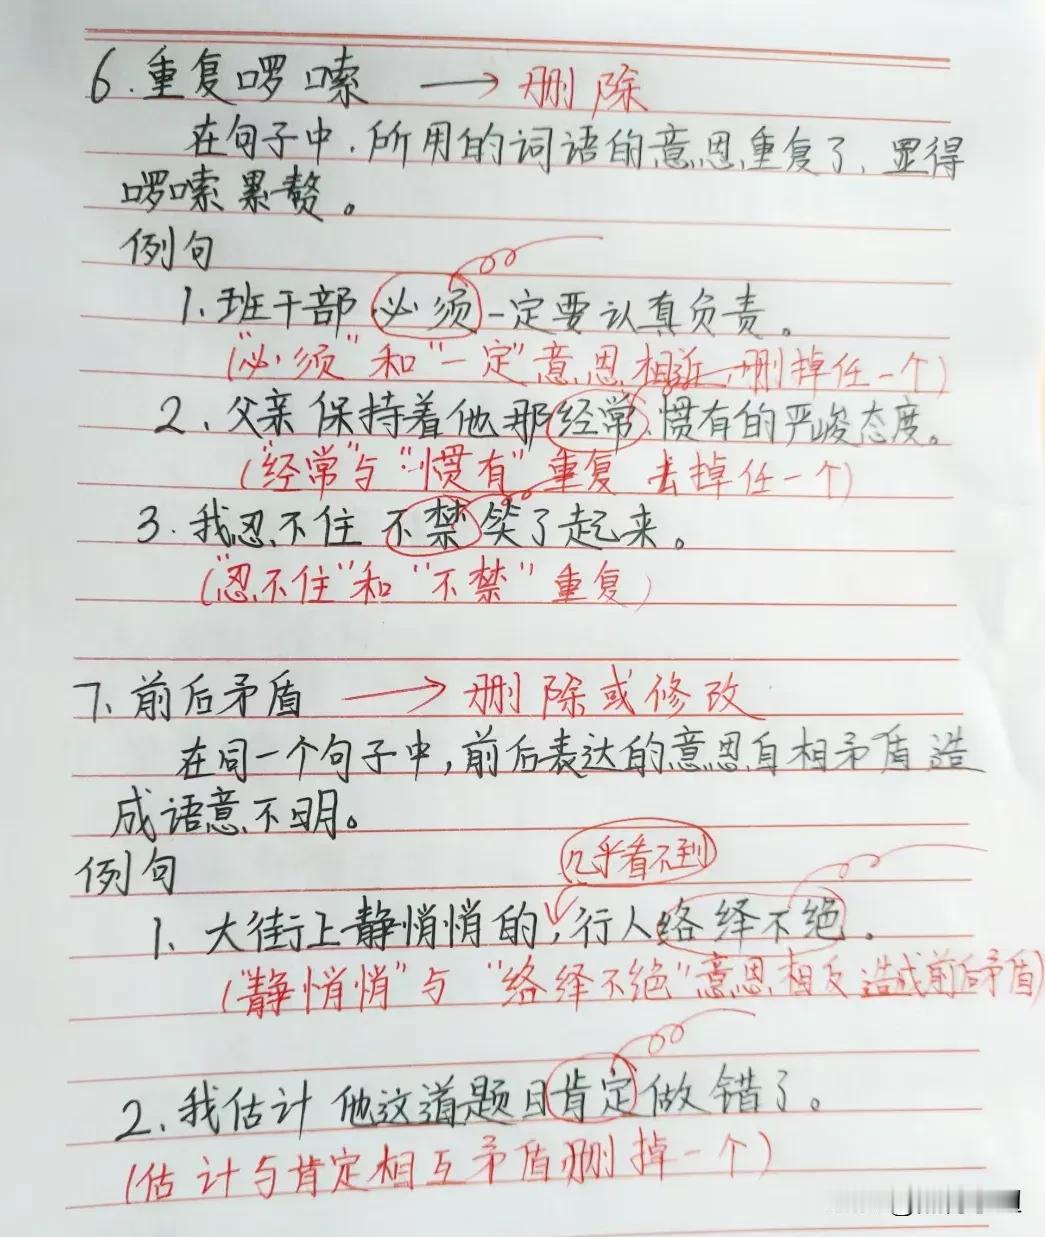 6.重复啰嗦 → 删除
在句子中,所用的词语的意思重复了、显得
啰嗦累赘。
例句
1、班干部必须一定要认真负责。
("必须"和"一定"意思相近,删掉任一个)
2、父亲保持着他那经常、惯有的严峻态度。
("经常"与"惯有"重复 去掉任一个)
3.我忍不住不禁笑了起来。
("忍不住"和"不禁"重复)
7、前后矛盾 → 删除或修改
在同一个句子中,前后表达的意思自相矛盾造
成语意不明。
例句
几乎看不到
1、大街上静悄悄的,行人络绎不绝。
("静悄悄"与"络绎不绝"意思相反造成前后矛盾)
2、我估计他这道题目肯定做错了。
(估计与肯定相互矛盾删掉一个)